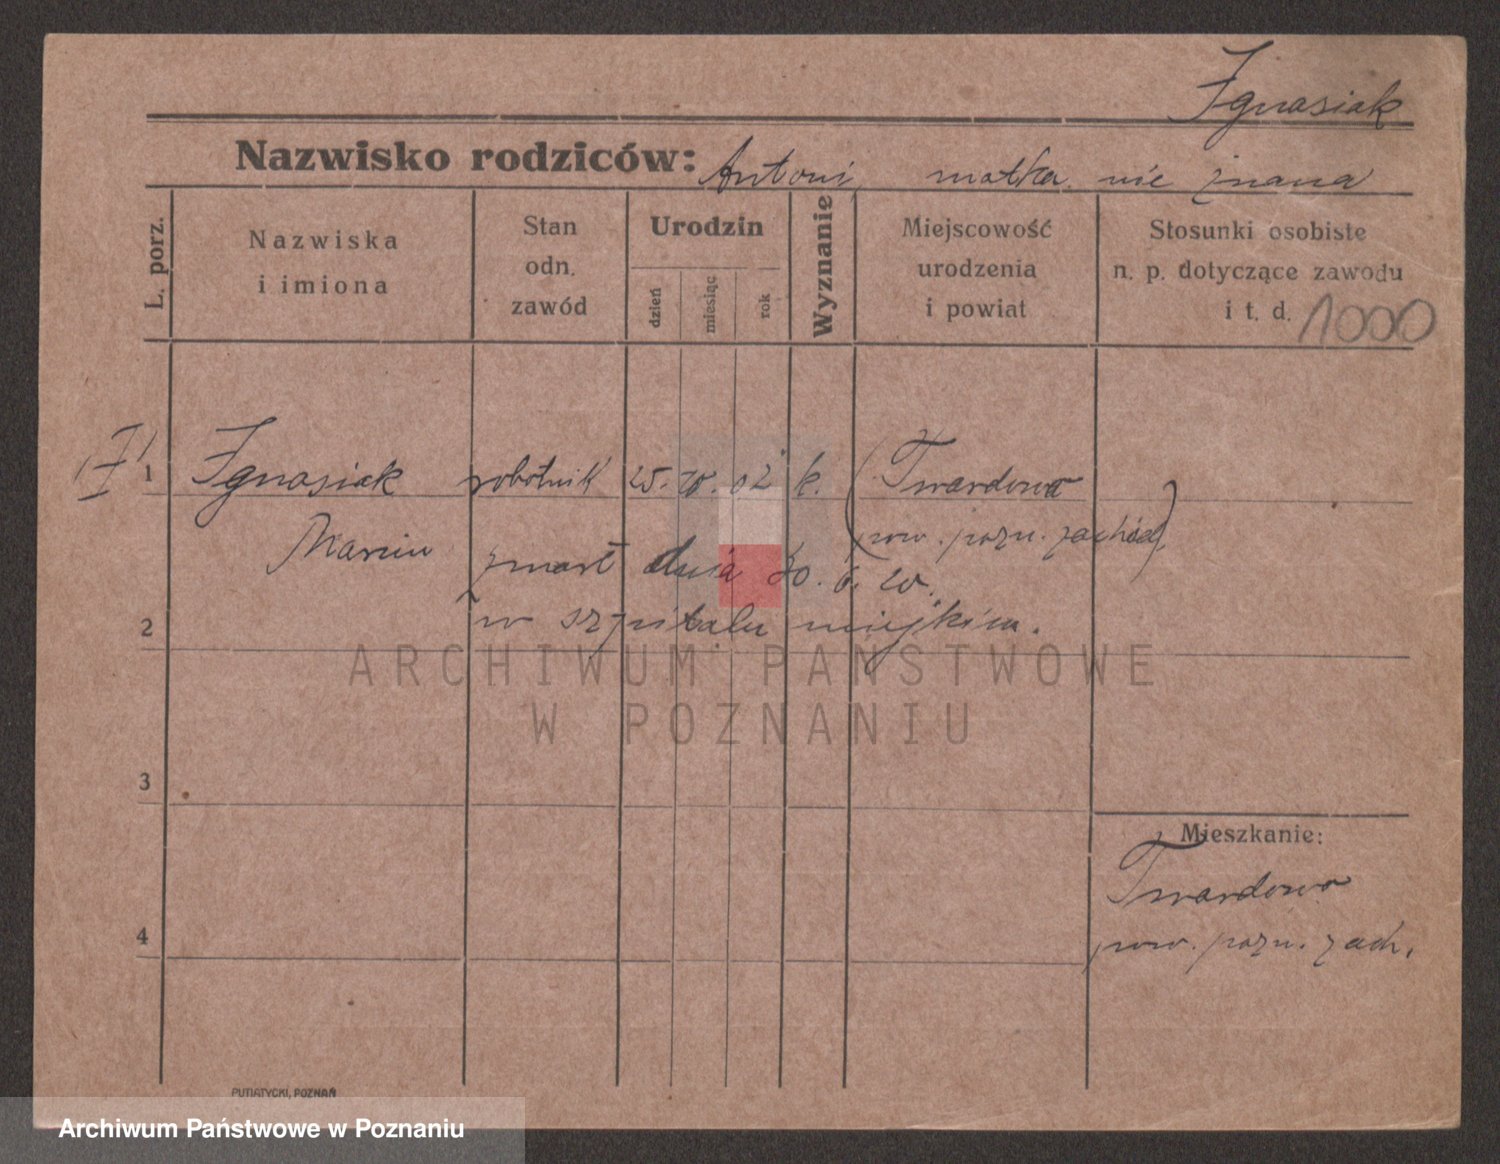 Ignasiak
Nazwisko rodziców: Antoni, matka nie znana
L. porz.
Nazwiska
i imiona
Stan
odn.
zawód
Urodzin
dzień
miesiąc
rok
Wyznanie
Miejscowość
urodzenia
i powiat
Stosunki osobiste
n. p. dotyczące zawodu
i t. d.
1000
1 Ignasiak robotnik 25. 10. 02 k. (Twardowo
Marcin
pow. pozn. zachód)
zmarł dnia 30. 6. 20.
w szpitalu miejskim.
2
ARCHIWUM PAŃSTWOWE
W POZNANIU
3
Mieszkanie:
Twardowo
4
pow. pozn. zach.
PUTIATYCKI, POZNAŃ
Archiwum Państwowe w Poznaniu